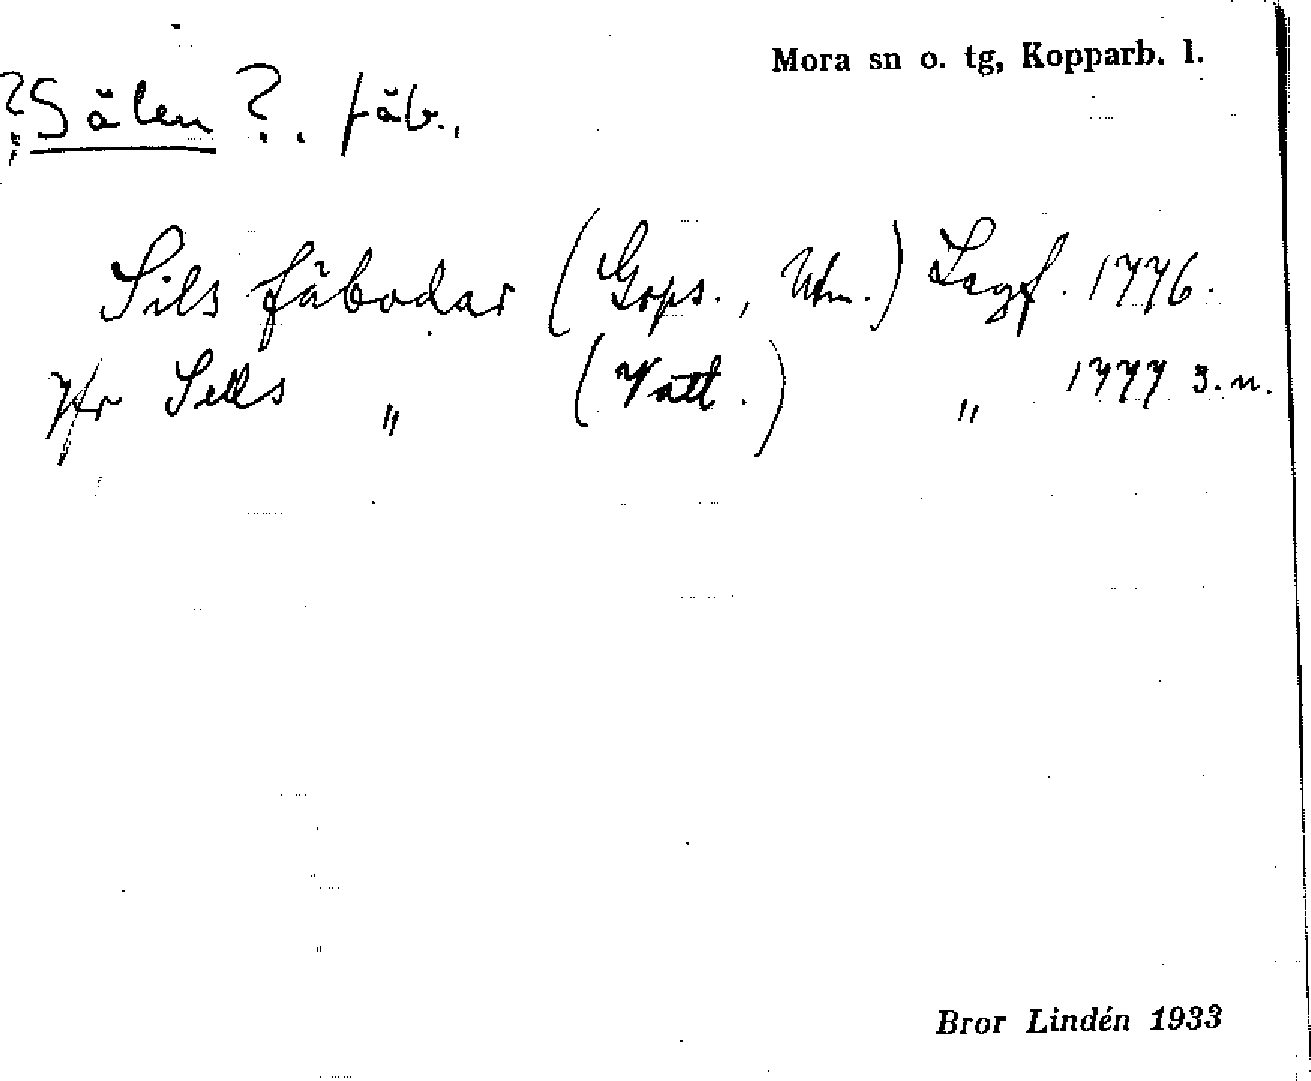 Mora sn o. tg, Kopparb. l.
?Sälen?. fäb.,
Sils fäbodar (Gops., Utm.) Lagf. 1776.
Jfr Sells " (Vatt.) " 1777 3. n.
Bror Lindén 1933